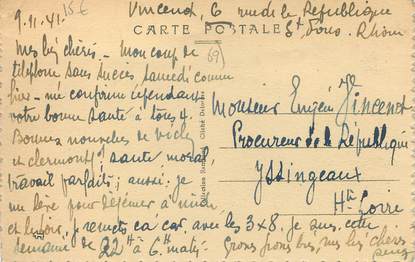 9.11.41
15€
Vincent, 6 rue de la République
St Fons. Rhône
CARTE POSTALE
69
Mes bien chéris - Mon coup de
téléphone sans succès samedi comme
hier - me confirme cependant
votre bonne santé à tous 4.
Bonnes nouvelles de Vichy
et Clermont santé moral,
travail parfaits; aussi je
me lève pour déjeuner à midi,
je remets ça car avec les 3x8 je suis cette
semaine de 22H à 6H matin.
Gros gros bis, mes bien chéris
Monsieur Eugène Vincent
Procureur de la République
Yssingeaux
Hte Loire